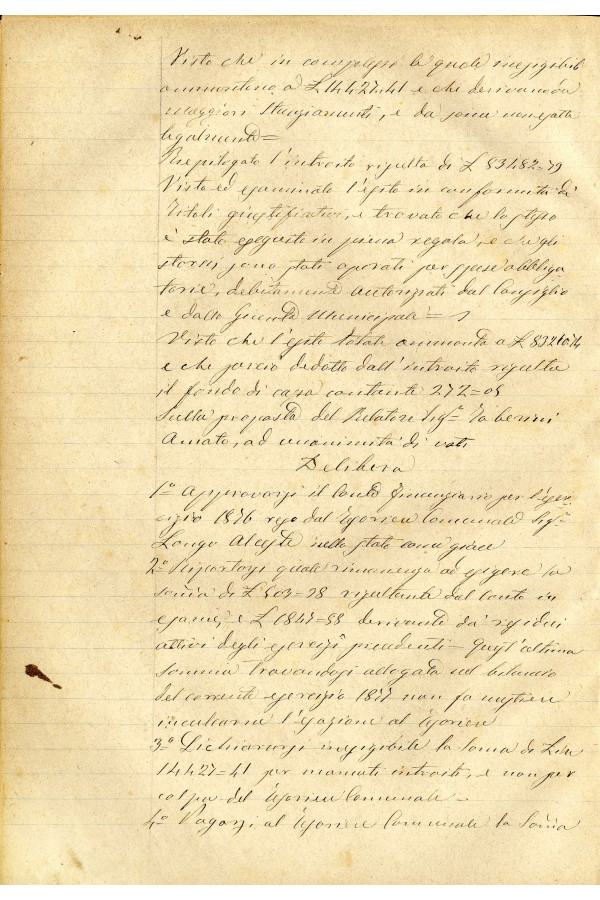 Visto che in complesso le quote inesigibili
ammontano a £ 14427=41 e che derivano da
maggiori stanziamenti, e da somme non esatte
legalmente=
Riepilogato l'introito risulta di £ 83482=79
Visto ed esaminato l'esito in conformità di
titoli giustificativi, e trovato che lo stesso
è stato eseguito in piena regola, e che gli
storni sono stati operati per spese obbliga
torie, debitamente autorizzati dal Consiglio
e dalla Giunta Municipale=
Visto che l'esito totale ammonta a £ 83210=74
e che perciò dedotto dall'introito risulta
il fondo di cassa contante 272=05
Sulla proposta del Relatore Sig.r
Amato, ad unanimità di voti
Delibera
1º Approvarsi il Conto finanziario per l'eser
cizio 1876 reso dal Tesoriere Comunale Sig.r
Longo Alceste nello stato come giace
2º Riportarsi quale rimanenza ad esigere la
somma di £ 503=28 risultante dal conto in
esame, e £ 1847=55 derivante da residui
attivi degli esercizî precedenti – Quest'ultima
somma trovandosi allogata nel bilancio
del corrente esercizio 1877 non fa mestiere
inculcarne l'esazione al Tesoriere
3º Dichiararsi inesigibile la somma di Lire
14427=41 per mancati introiti, e non per
colpa del Tesoriere Comunale –
4º Pagarsi al Tesoriere Comunale la Somma